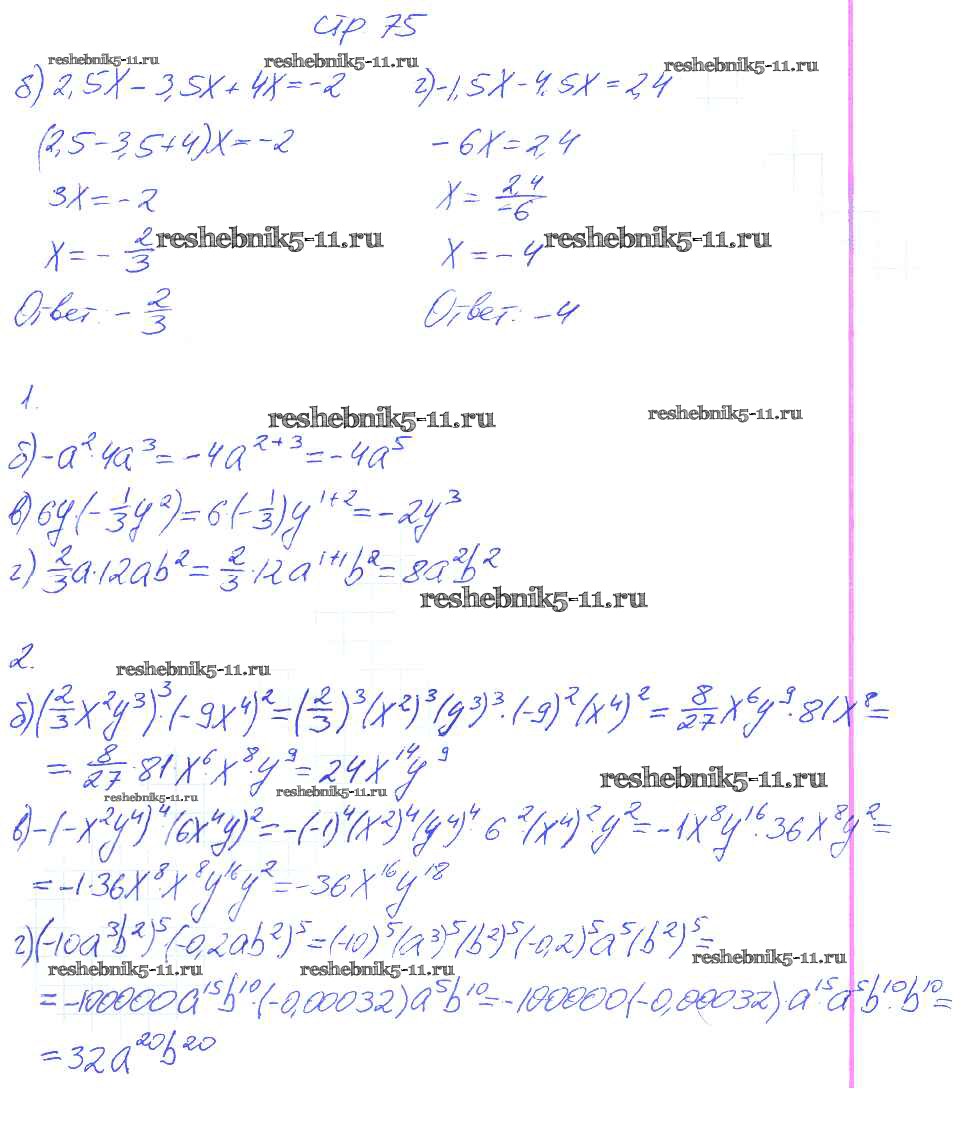 стр 75
reshebnik5-11.ru reshebnik5-11.ru reshebnik5-11.ru
б) 2,5x - 3,5x + 4x = -2 г) -1,5x - 4,5x = 2,4
(2,5 - 3,5 + 4)x = -2 -6x = 2,4
3x = -2 x = 2,4/-6
x = - 2/3 reshebnik5-11.ru x = -4 reshebnik5-11.ru
Ответ: - 2/3 Ответ: -4
1.
reshebnik5-11.ru reshebnik5-11.ru
б) -a²·4a³ = -4a²⁺³ = -4a⁵
в) 6y·(-1/3y²) = 6·(-1/3)y¹⁺² = -2y³
г) 2/3a·12ab² = 2/3·12a¹⁺¹b² = 8a²b²
reshebnik5-11.ru
2.
reshebnik5-11.ru
б) (2/3x²y³)³·(-9x⁴)² = (2/3)³(x²)³(y³)³·(-9)²(x⁴)² = 8/27x⁶y⁹·81x⁸ =
= 8/27·81·x⁶·x⁸·y⁹ = 24x¹⁴y⁹
reshebnik5-11.ru
reshebnik5-11.ru reshebnik5-11.ru
в) -(-x²y⁴)⁴·(6x⁴y)² = -(-1)⁴(x²)⁴(y⁴)⁴·6²(x⁴)²·y² = -1x⁸y¹⁶·36x⁸y² =
= -1·36x⁸x⁸y¹⁶y² = -36x¹⁶y¹⁸
г) (-10a³b²)⁵·(-0,2ab²)⁵ = (-10)⁵(a³)⁵(b²)⁵(-0,2)⁵a⁵(b²)⁵ =
reshebnik5-11.ru reshebnik5-11.ru reshebnik5-11.ru
= -100000a¹⁵b¹⁰·(-0,00032)a⁵b¹⁰ = -100000(-0,00032)·a¹⁵a⁵b¹⁰·b¹⁰ =
= 32a²⁰b²⁰